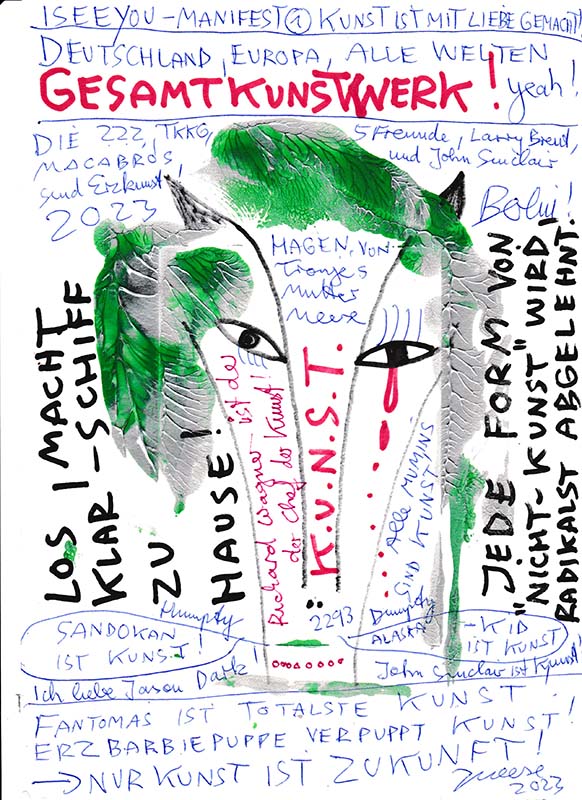 ISEEYOU – MANIFEST ① KUNST IST MIT LIEBE GEMACHT!
DEUTSCHLAND, EUROPA, ALLE WELTEN
GESAMTKUNSTWERK! yeah!
DIE 222, TKKG, 5 Freunde, Larry Brent,
MACABROS und John Sinclair
sind Erzkunst,
2023
HAGEN VON
Tronjes
Mutter
Meese
LOS! MACHT
KLAR-SCHIFF
ZU
HAUSE!
Richard Wagner ist der
der Chef der Kunst!
"K.U.N.S.T.
Alle MUMINS
SIND KUNST
JEDE FORM VON
"NICHT-KUNST" WIRD
RADIKALST ABGELEHNT!
Humpty 2293 Dumpty
SANDOKAN
IST KUNST!
ALASKA-KID
IST KUNST
Ich liebe Jason Dark!
John Sinclair ist Kunst!
FANTOMAS IST TOTALSTE KUNST!
ERZBARBIEPUPPE VERPUPPT KUNST!
→ NUR KUNST IST ZUKUNFT!
JMeese
2023